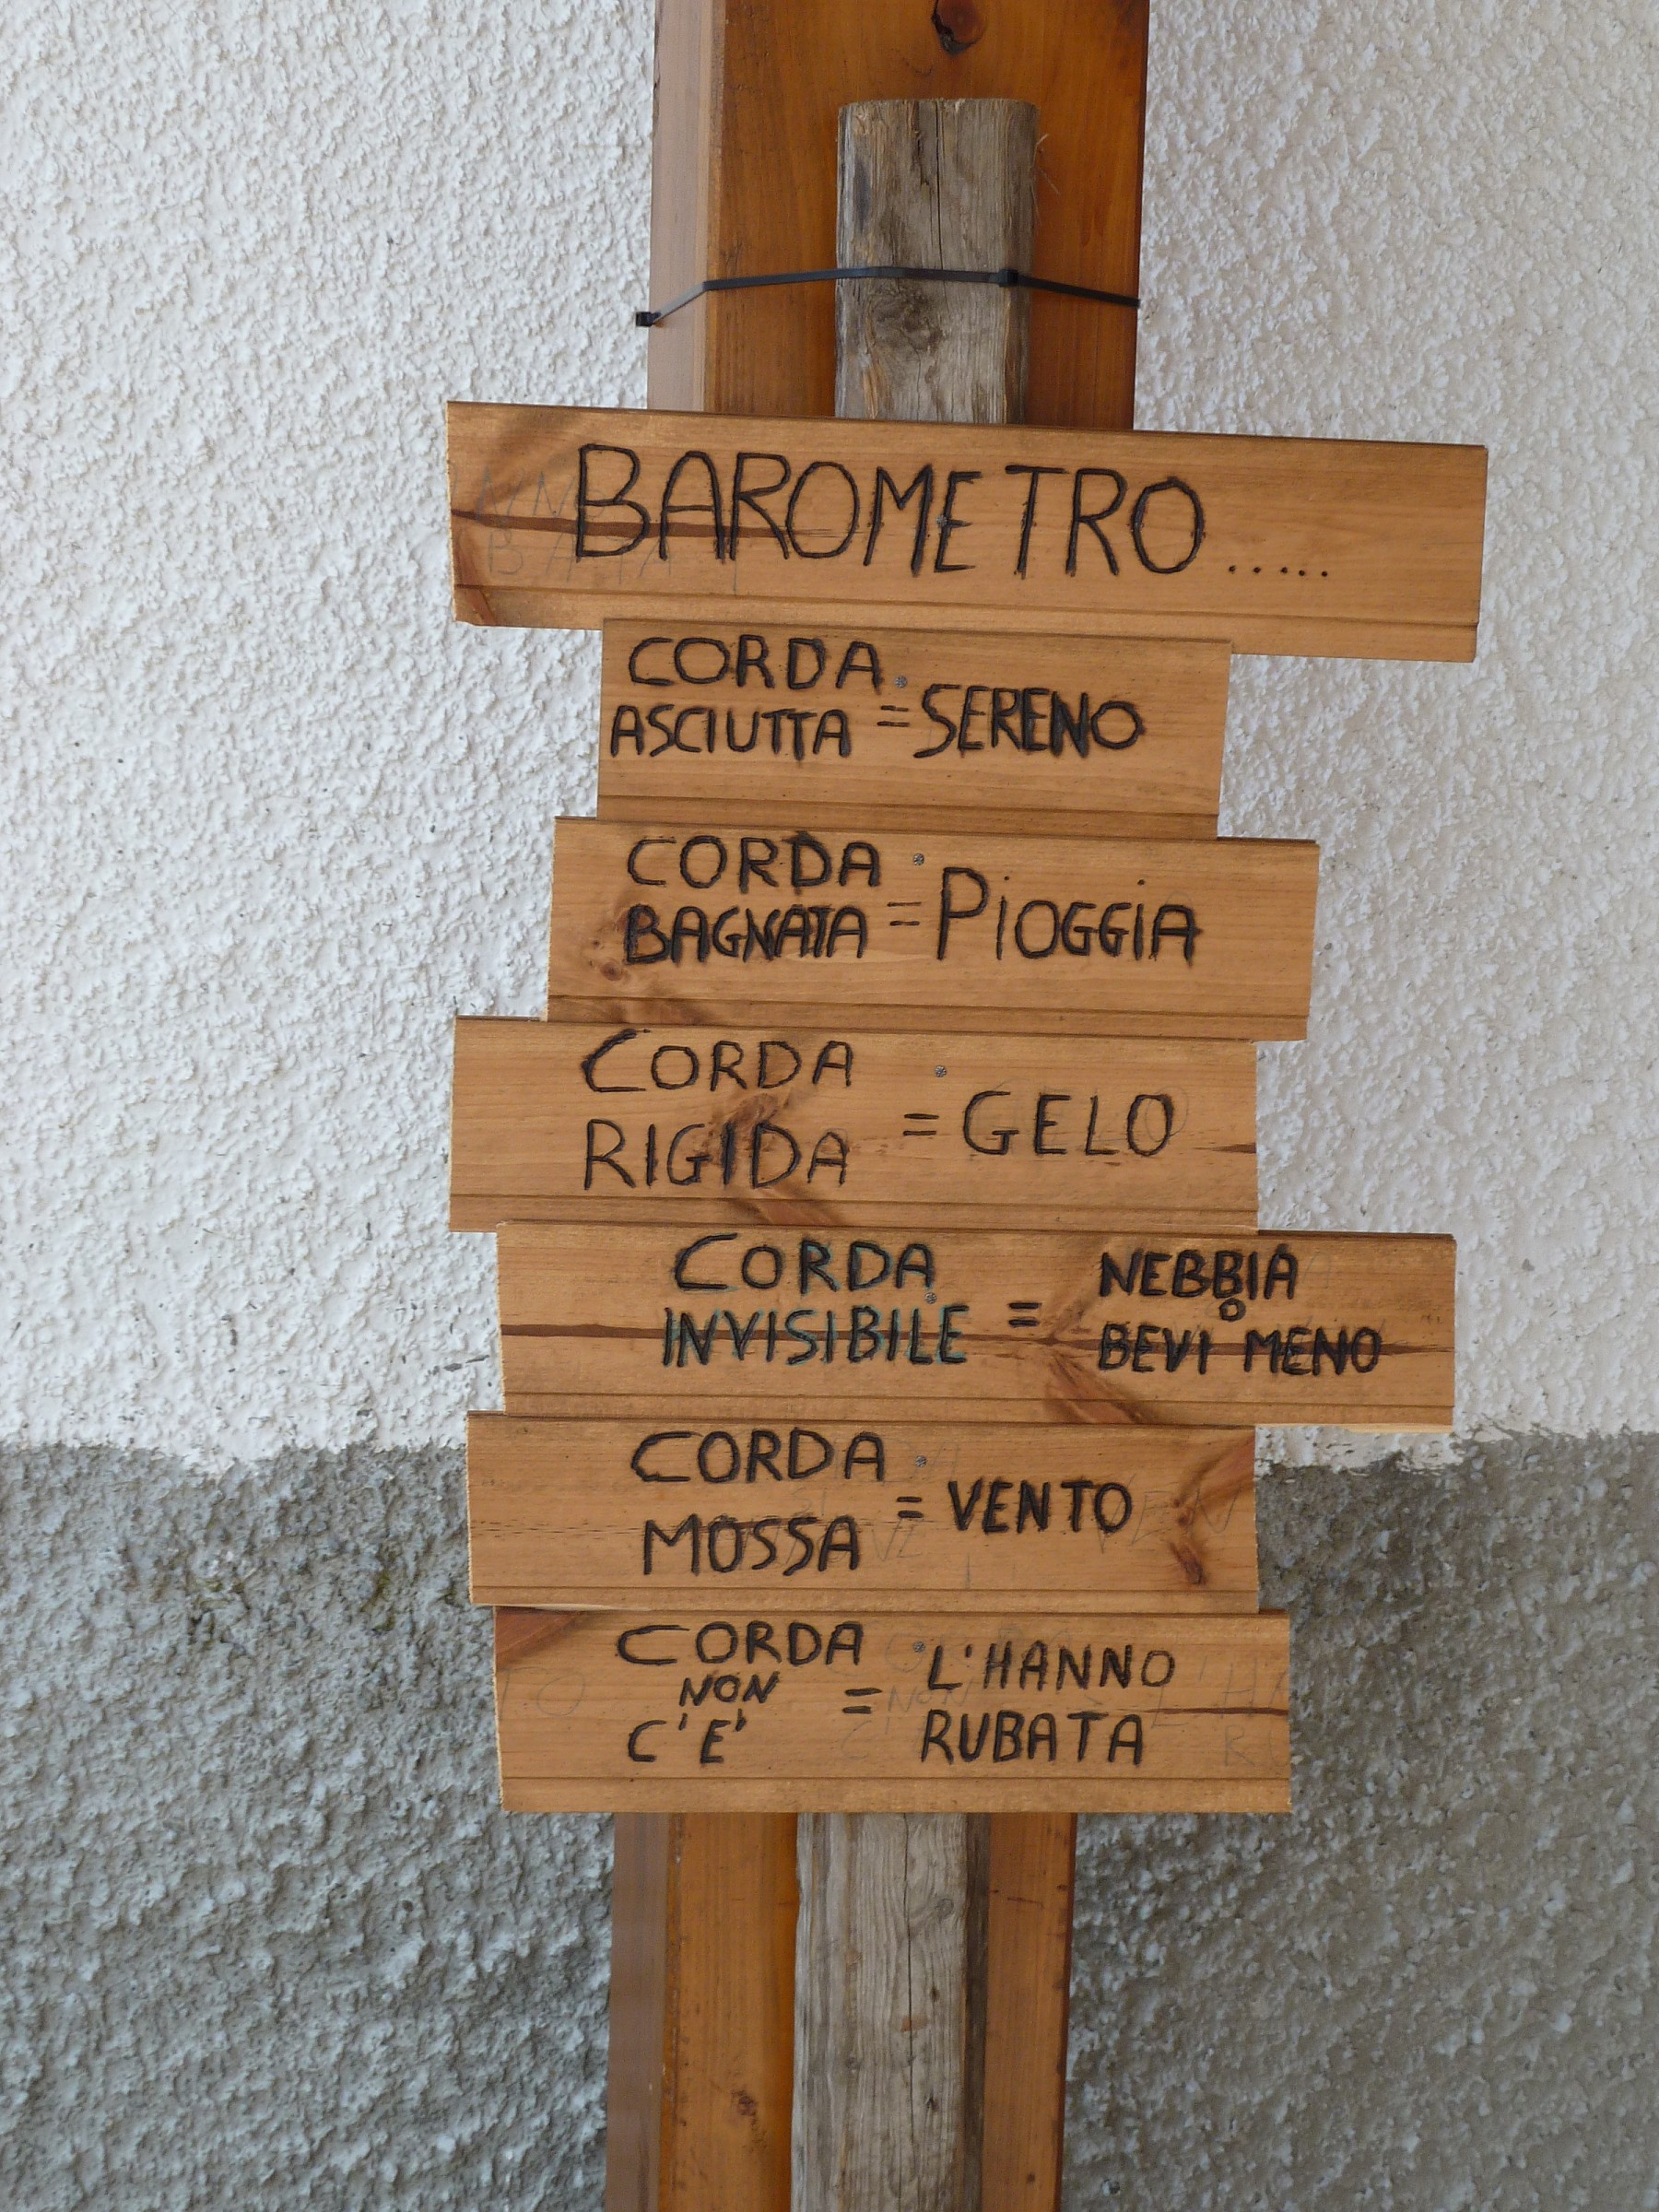 BAROMETRO.....
CORDA
ASCIUTTA = SERENO
CORDA
BAGNATA = PiOGGiA
CORDA
RIGIDA = GELO
CORDA
INVISIBILE = NEBBIA
O
BEVI MENO
CORDA
MOSSA = VENTO
CORDA
NON
C'E' = L'HANNO
RUBATA